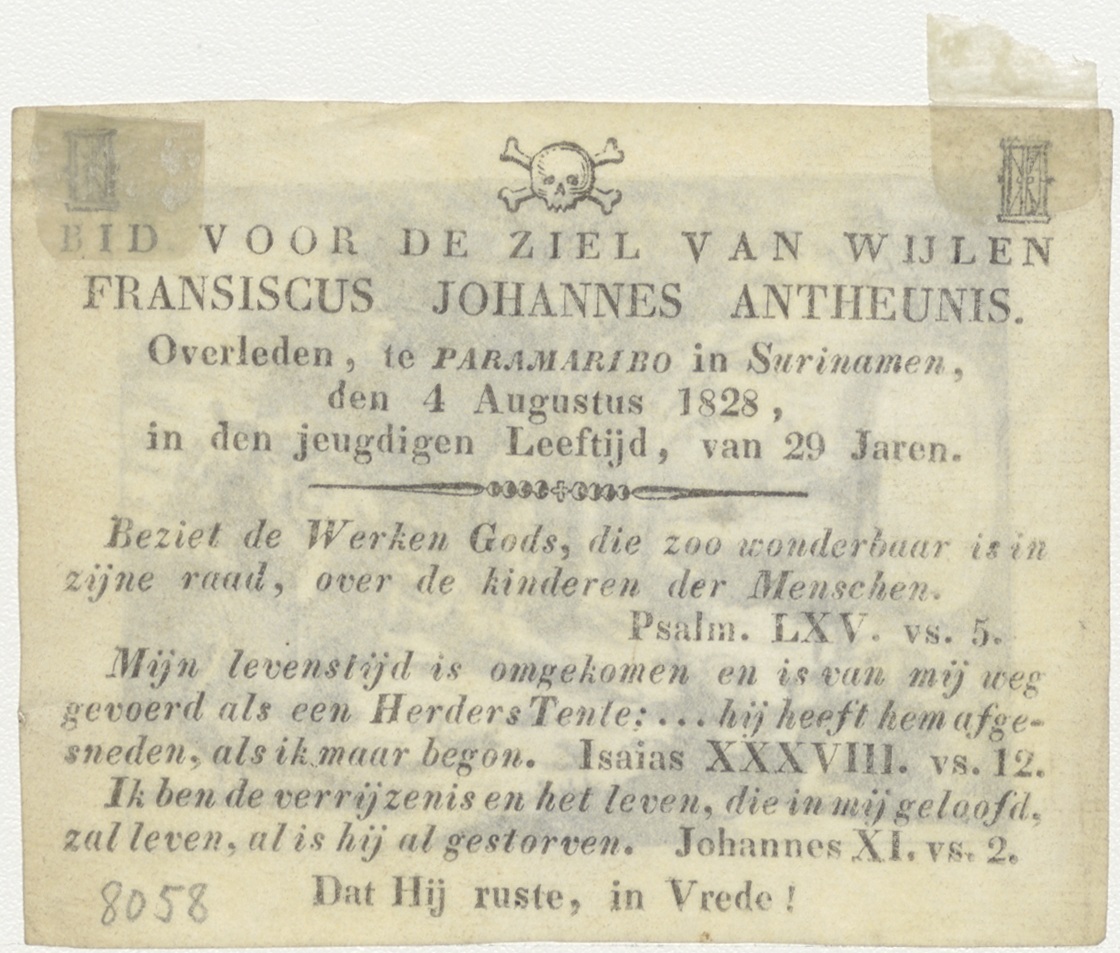 BID VOOR DE ZIEL VAN WIJLEN
FRANSISCUS JOHANNES ANTHEUNIS.
Overleden, te PARAMARIBO in Surinamen,
den 4 Augustus 1828,
in den jeugdigen Leeftijd, van 29 Jaren.
Beziet de Werken Gods, die zoo wonderbaar is in
zijne raad, over de kinderen der Menschen.
Psalm. LXV. vs. 5.
Mijn levenstijd is omgekomen en is van mij weg
gevoerd als een Herders Tente; ... hij heeft hem afge-
sneden, als ik maar begon. Isaias XXXVIII. vs. 12.
Ik ben de verrijzenis en het leven, die in mij geloofd,
zal leven, al is hij al gestorven. Johannes XI. vs. 2.
Dat Hij ruste, in Vrede!
8058